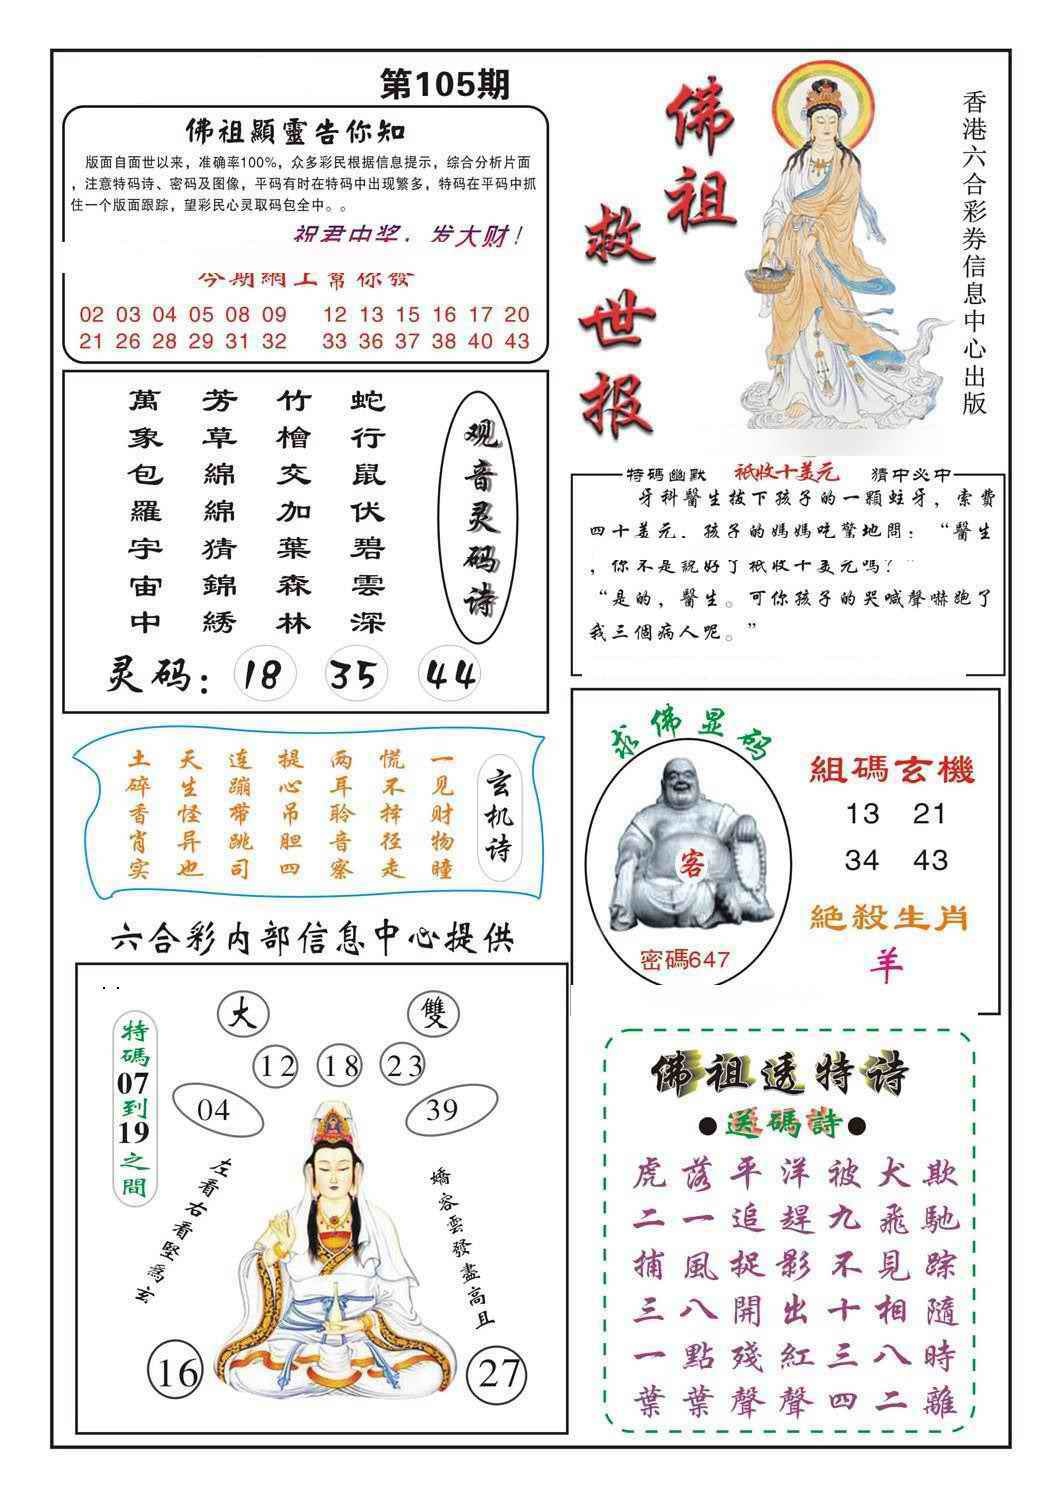 第105期
佛祖顯靈告你知
版面自面世以来，准确率100%，众多彩民根据信息提示，综合分析片面
，注意特码诗、密码及图像，平码有时在特码中出现繁多，特码在平码中抓
住一个版面跟踪，望彩民心灵取码包全中。。
祝君中奖，发大财！
今期網上幫你發
02 03 04 05 08 09 12 13 15 16 17 20
21 26 28 29 31 32 33 36 37 38 40 43
佛祖
救世报
香港六合彩券信息中心出版
观音灵码诗
蛇行鼠伏碧雲深
竹檜交加葉森林
芳草綿綿猜錦綉
萬象包羅宇宙中
灵码：18 35 44
特码幽默 祇收十美元 猜中必中
牙科醫生拔下孩子的一顆蛀牙，索費
四十美元．孩子的媽媽吃驚地問：“醫生
，你不是説好了祇收十美元嗎？”
“是的，醫生。可你孩子的哭喊聲嚇跑了
我三個病人呢。”
玄机诗
一见财物瞳
慌不择径走
两耳聆音察
提心吊胆四
连蹦带跳司
天生怪异也
土碎香肖实
求佛显码
客
密碼647
組碼玄機
13 21
34 43
絶殺生肖
羊
六合彩内部信息中心提供
特碼07到19之間
大 雙
12 18 23
04 39
左看右看堅爲玄
嬌容雲發盡高且
16 27
佛祖透特诗
●送碼詩●
虎落平洋被犬欺
二一追趕九飛馳
捕風捉影不見踪
三八開出十相隨
一點殘紅三八時
葉葉聲聲四二離